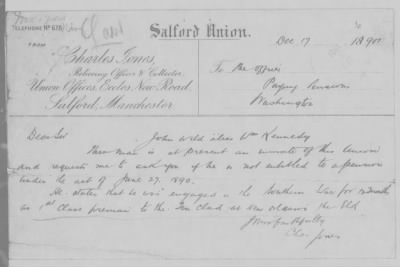 TELEPHONE No 678
Salford Union.
Dec 17 1890
FROM
Charles Jones,
Relieving Officer & Collector,
Union Offices, Eccles New Road,
Salford, Manchester
To the officer
Paying Pensions
Washington
Dear Sir
John Wild alias Wm Kennedy
This man is at present an inmate of this Union
and requests me to ask you if he is not entitled to a pension
under the act of June 27. 1890.
He states that he was engaged in the Southern War for months
as 1st Class fireman to the Iron Clad at New Orleans
Yours faithfully
Chas Jones